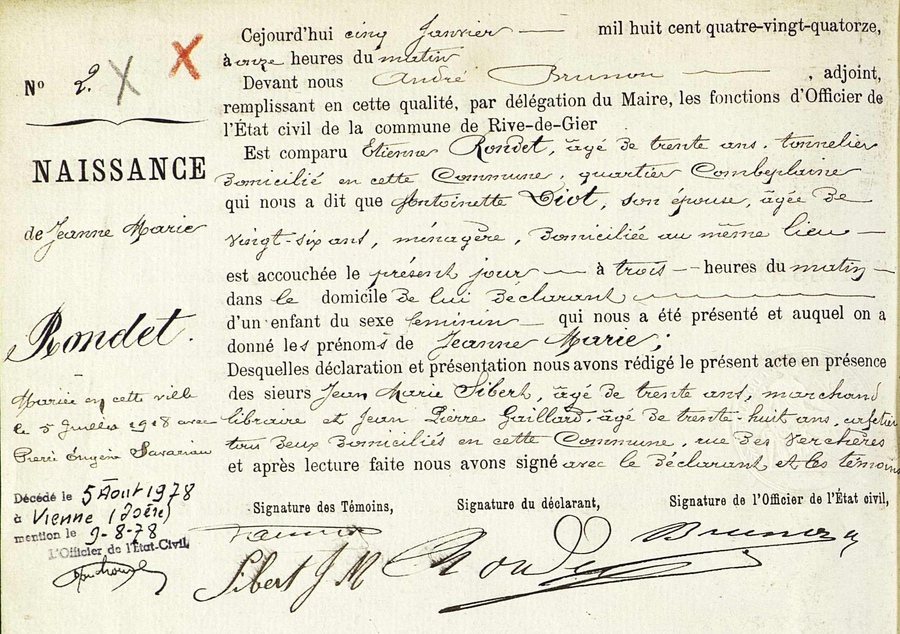 Nº 2.
NAISSANCE
de Jeanne Marie
Rondet.
Mariée en cette ville
le 5 Juillet 1918 avec
Pierre Eugène
Décédé le 5 Août 1978
à Vienne (Isère)
mention le 9-8-78
l'Officier de l'État-Civil,
Cejourd'hui cinq Janvier — mil huit cent quatre-vingt-quatorze,
à onze heures du matin
Devant nous André Brunon — , adjoint,
remplissant en cette qualité, par délégation du Maire, les fonctions d'Officier de
l'État civil de la commune de Rive-de-Gier
Est comparu Etienne Rondet, âgé de trente ans, tonnelier
domicilié en cette Commune, quartier Combeplaine
qui nous a dit que Antoinette Diot, son épouse, âgée de
vingt-six ans, ménagère, domiciliée au même lieu —
est accouchée le présent jour — à trois — heures du matin —
dans le domicile de lui déclarant —
d'un enfant du sexe feminin — qui nous a été présenté et auquel on a
donné les prénoms de Jeanne Marie;
Desquelles déclaration et présentation nous avons rédigé le présent acte en présence
des sieurs Jean Marie Sibert, âgé de trente ans, marchand
libraire et Jean Pierre Gaillard, âgé de trente huit ans, cafetier
tous deux domiciliés en cette Commune, rue des Verchères
et après lecture faite nous avons signé avec le déclarant et les témoins
Signature des Témoins, Signature du déclarant, Signature de l'Officier de l'État civil,
Sibert J M Rondet Brunon